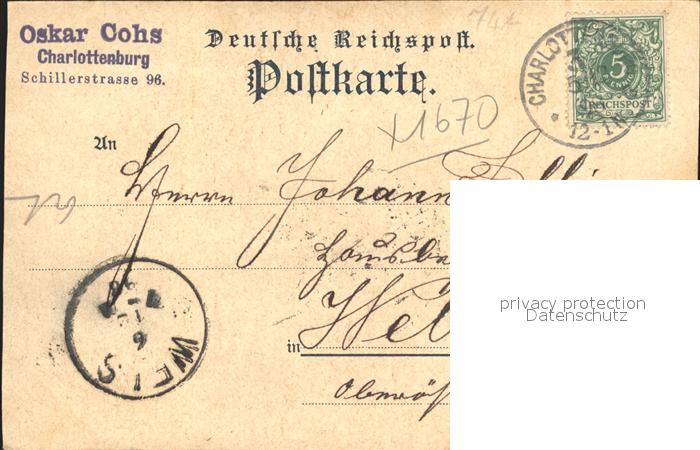 Oskar Cohs
Charlottenburg
Schillerstrasse 96.
Deutsche Reichspost.
Postkarte.
74
CHARLOT
12-1N
5
REICHSPOST
1670
An
Herrn Johann
Hausbe
in Wel
Oberös
WELS
privacy protection
Datenschutz